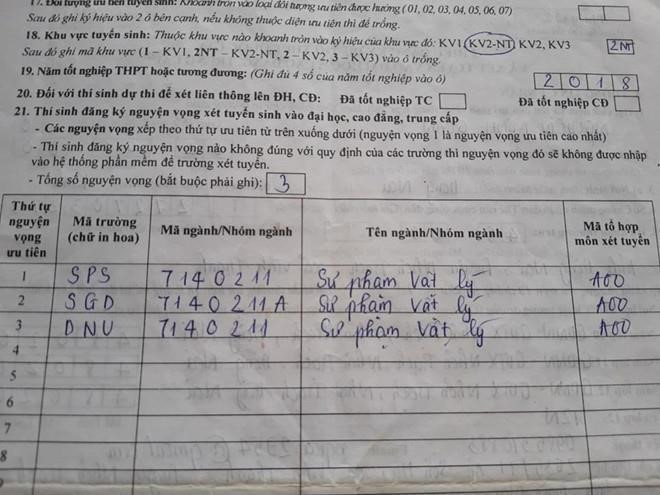 17. Đối tượng ưu tiên tuyển sinh: Khoanh tròn vào loại đối tượng ưu tiên được hưởng (01, 02, 03, 04, 05, 06, 07)
Sau đó ghi ký hiệu vào 2 ô bên cạnh, nếu không thuộc diện ưu tiên thì để trống.
18. Khu vực tuyển sinh: Thuộc khu vực nào khoanh tròn vào ký hiệu của khu vực đó: KV1, KV2-NT, KV2, KV3
Sau đó ghi mã khu vực (1 – KV1, 2NT – KV2-NT, 2 – KV2, 3 – KV3) vào ô trống. 2NT
19. Năm tốt nghiệp THPT hoặc tương đương: (Ghi đủ 4 số của năm tốt nghiệp vào ô) 2 0 1 8
20. Đối với thí sinh dự thi để xét liên thông lên ĐH, CĐ: Đã tốt nghiệp TC Đã tốt nghiệp CĐ
21. Thí sinh đăng ký nguyện vọng xét tuyển sinh vào đại học, cao đẳng, trung cấp
- Các nguyện vọng xếp theo thứ tự ưu tiên từ trên xuống dưới (nguyện vọng 1 là nguyện vọng ưu tiên cao nhất)
- Thí sinh đăng ký nguyện vọng nào không đúng với quy định của các trường thì nguyện vọng đó sẽ không được nhập
vào hệ thống phần mềm để trường xét tuyển.
- Tổng số nguyện vọng (bắt buộc phải ghi): 3
Thứ tự nguyện vọng ưu tiên Mã trường (chữ in hoa) Mã ngành/Nhóm ngành Tên ngành/Nhóm ngành Mã tổ hợp môn xét tuyển
1 SPS 7140211 Sư phạm Vật lý A00
2 SGD 7140211A Sư phạm Vật lý A00
3 DNU 7140211 Sư phạm Vật lý A00
4
5
6
7
8